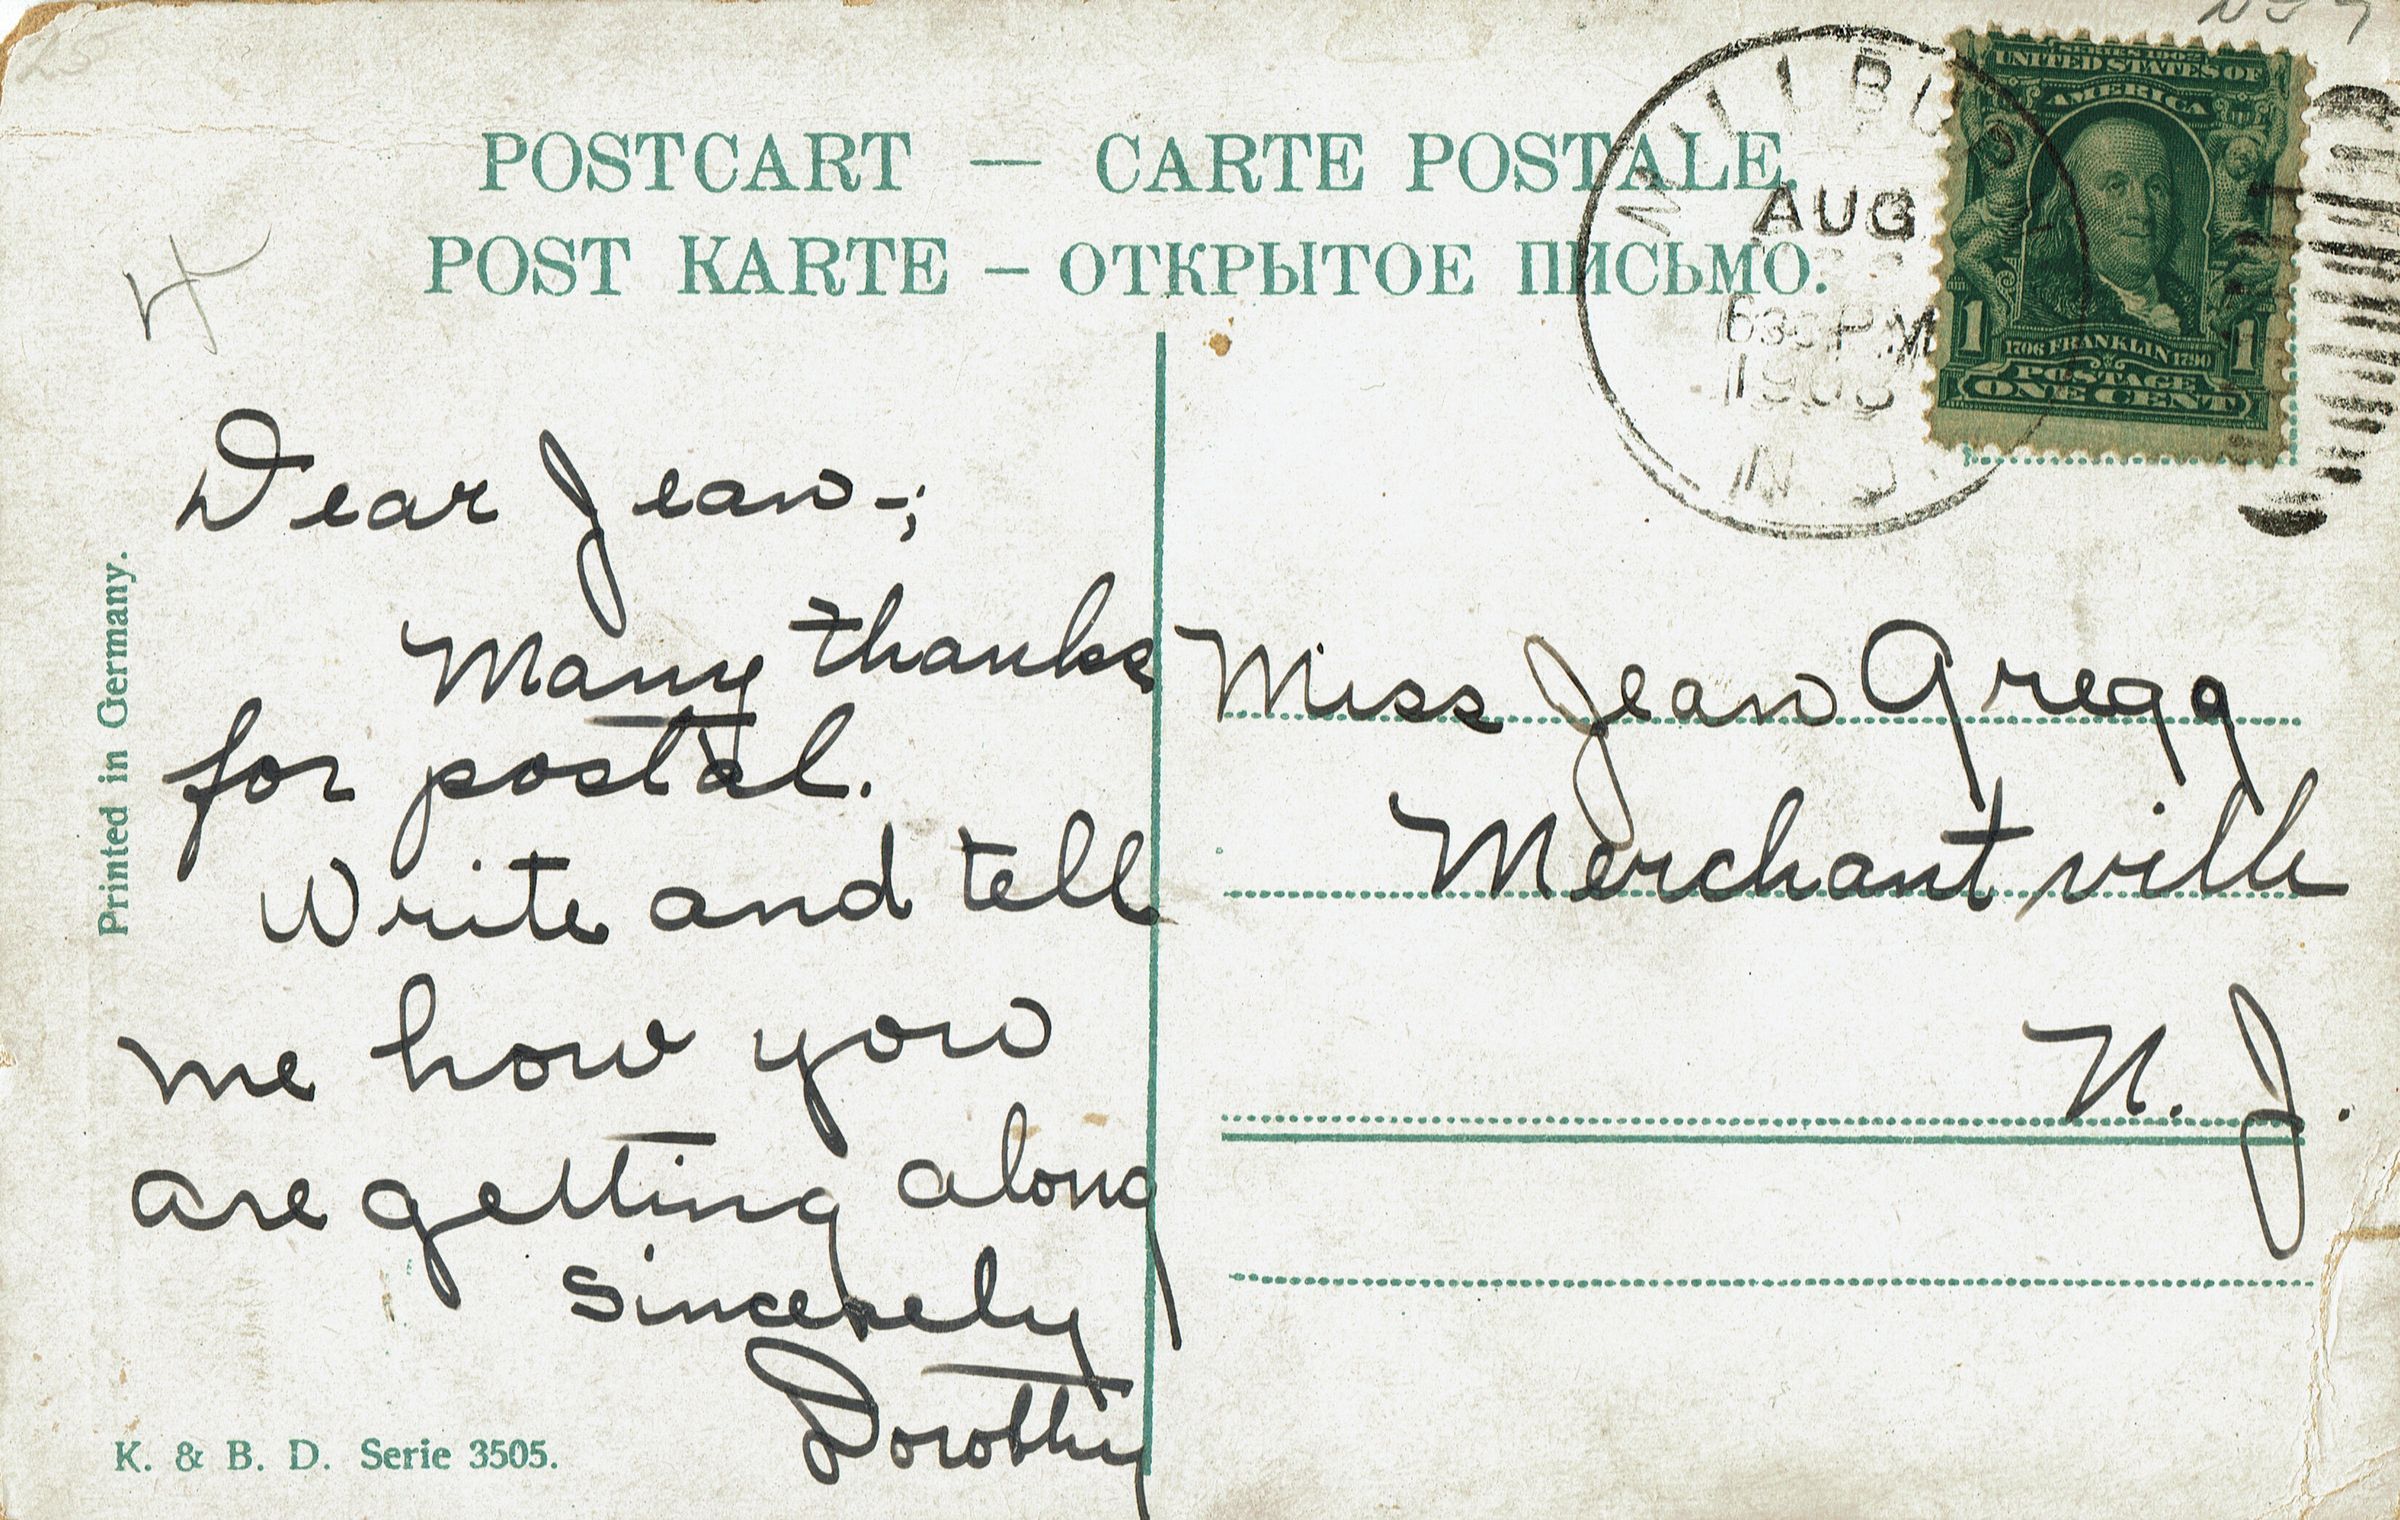 POSTCART — CARTE POSTALE.
POST KARTE – ОТКРЫТОЕ ПИСЬМО.
AUG
630 PM
1908
N. J.
SERIES 1902
UNITED STATES OF
AMERICA
1 1706 FRANKLIN 1790 1
POSTAGE
ONE CENT
Printed in Germany.
Dear Jean-;
Many thanks
for postal.
Write and tell
me how you
are getting along
Sincerely
Dorothy
Miss Jean Gregg
Merchantville
N. J.
K. & B. D. Serie 3505.